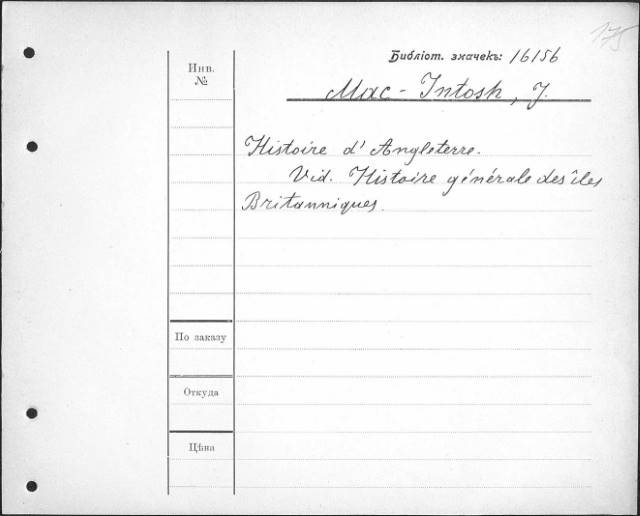 175
Библіот. значекъ: 16156
Инв.
№
Mac-Intosh, J.
Histoire d'Angleterre.
Vid. Histoire générale des îles
Britanniques.
По заказу
Откуда
Цѣна